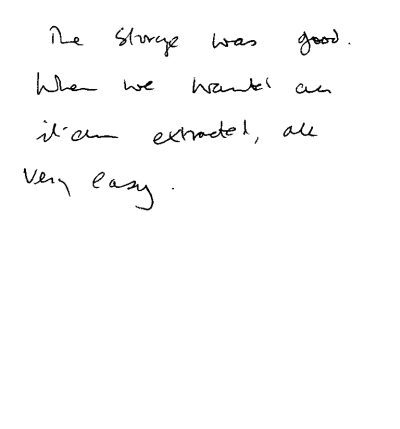 The storage was good.
When we wanted an
item extracted, all
very easy.